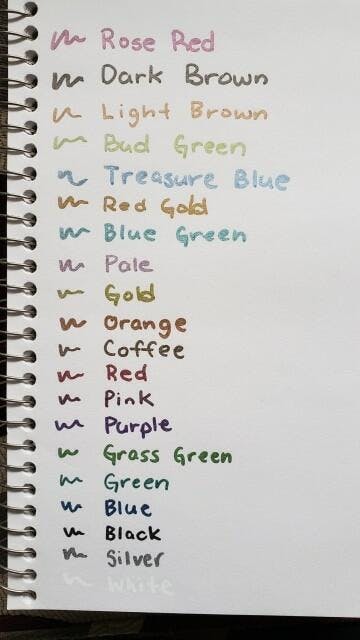 Rose Red
Dark Brown
Light Brown
Bud Green
Treasure Blue
Red Gold
Blue Green
Pale
Gold
Orange
Coffee
Red
Pink
Purple
Grass Green
Green
Blue
Black
Silver
White